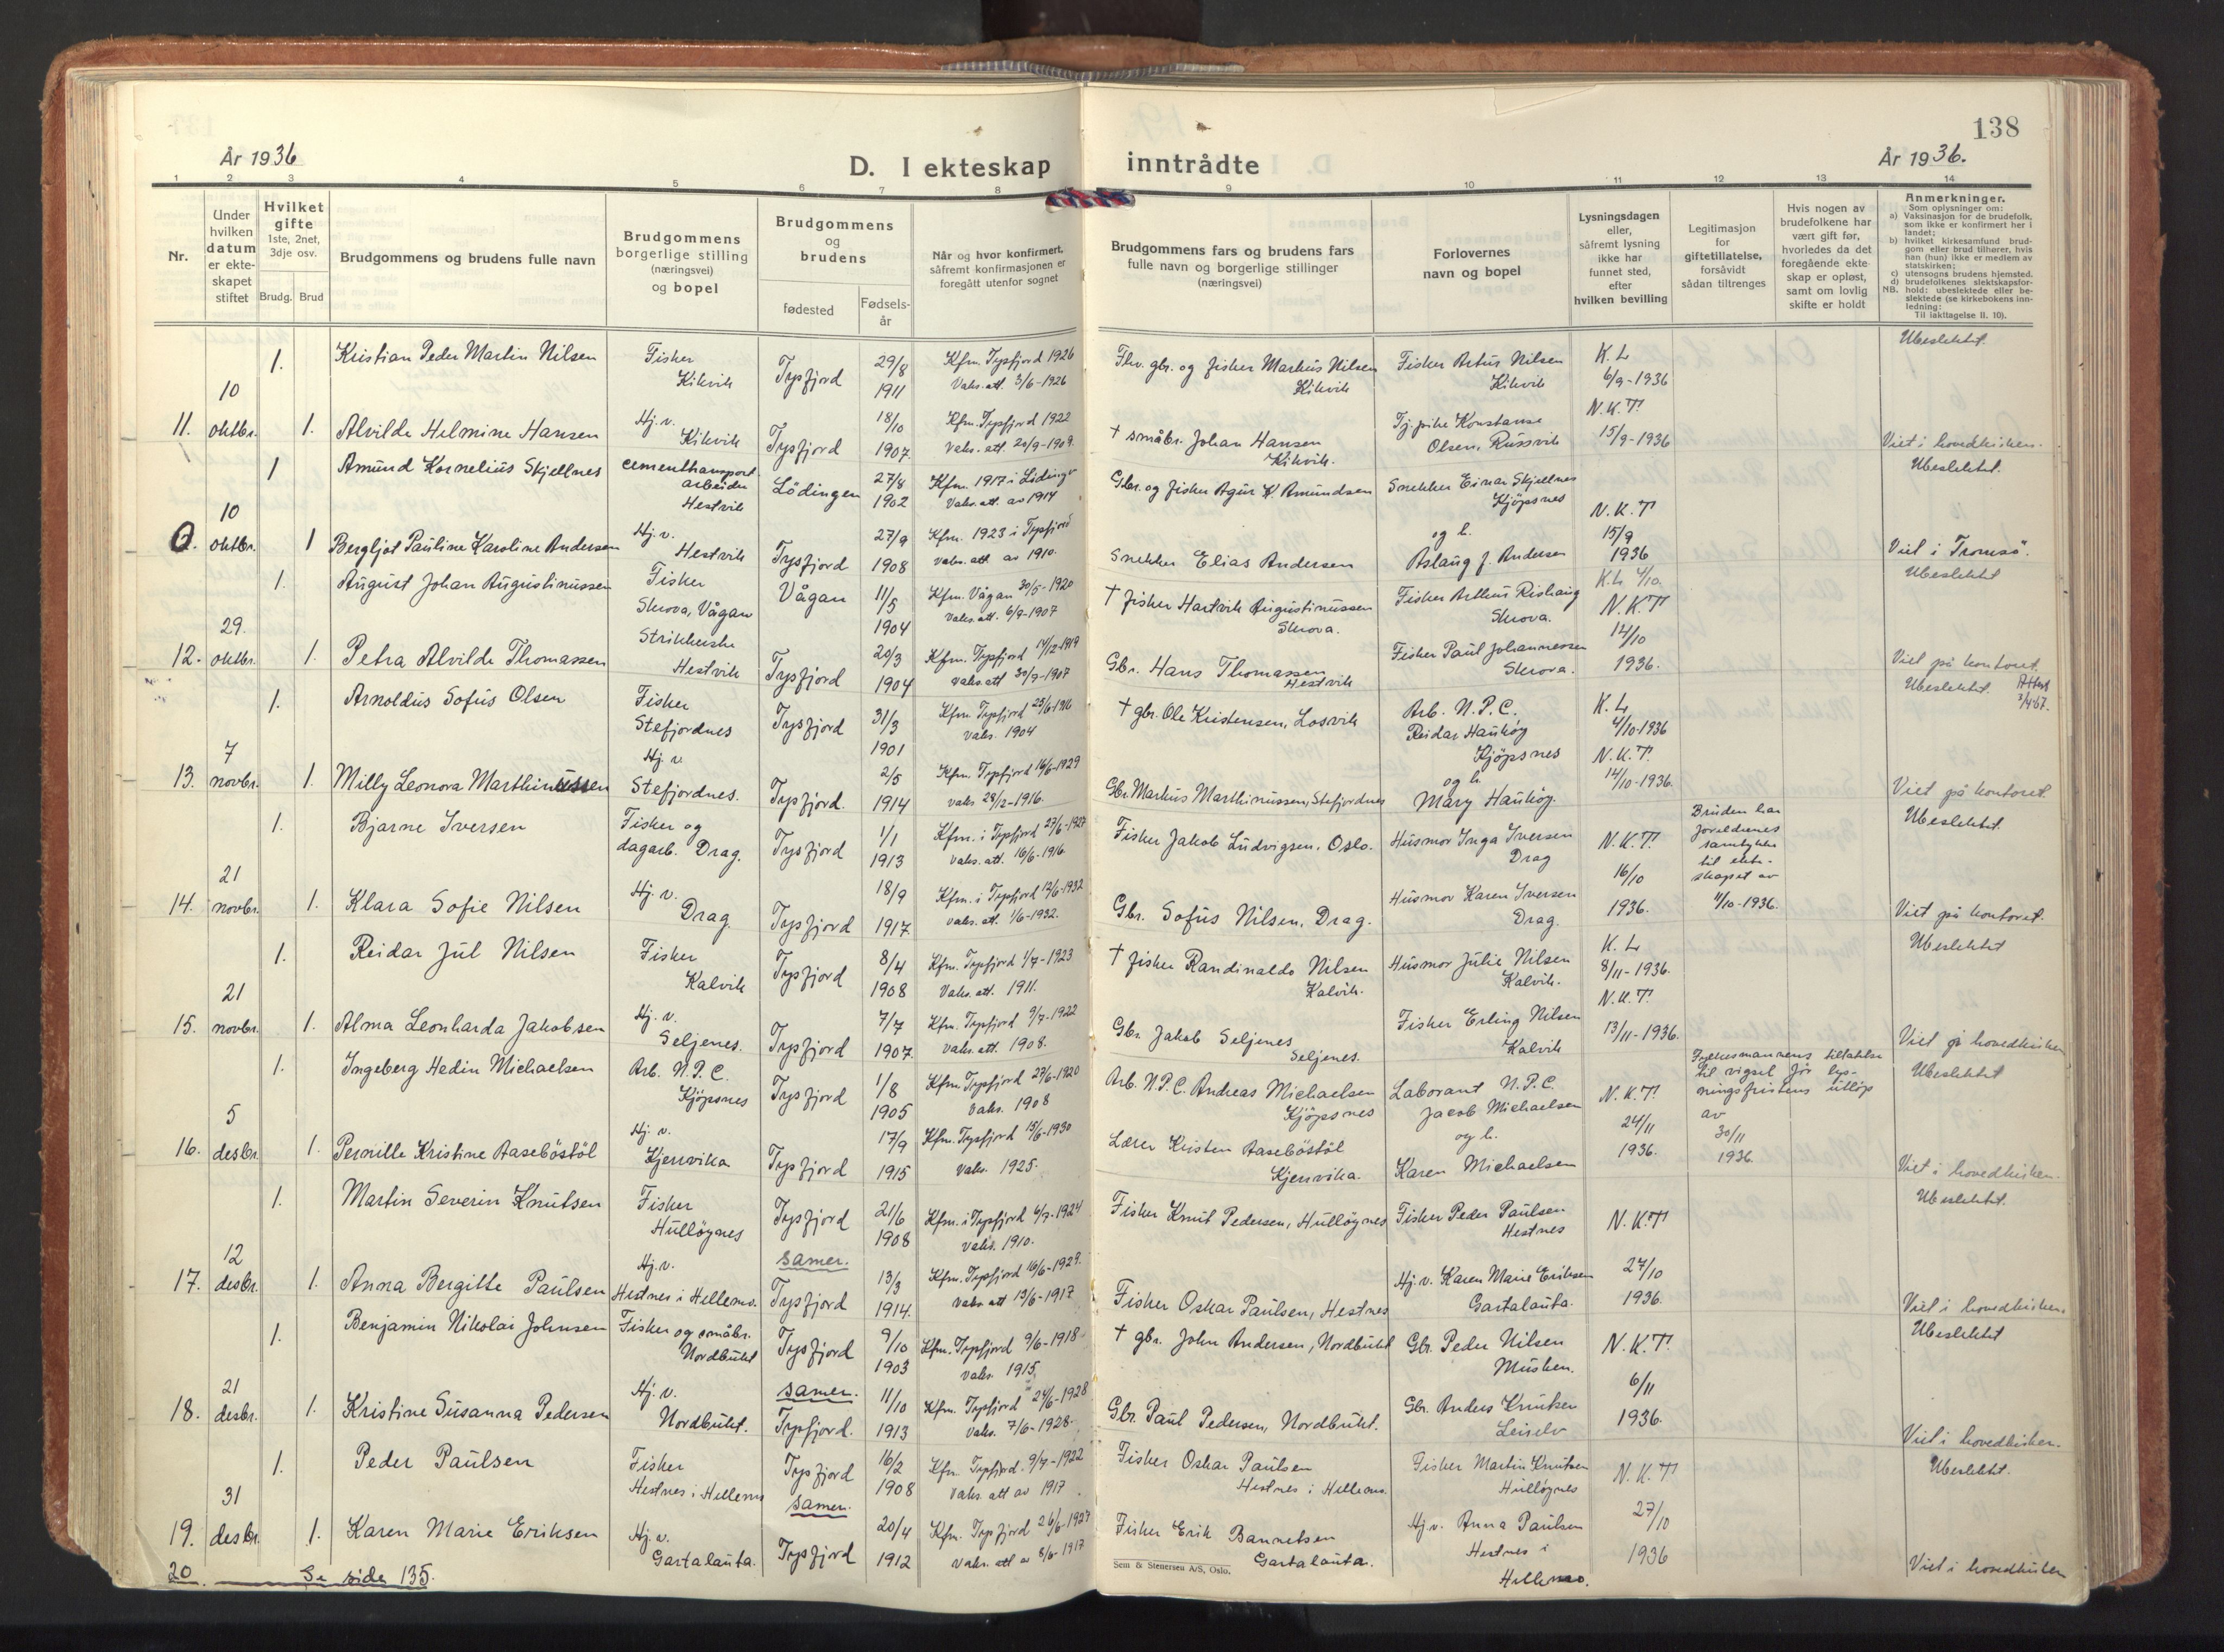 138
År 1936
D. I ekteskap inntrådte
År 1936.
1 2 3 4 5 6 7 8 9 10 11 12 13 14
Nr.
Under hvilken datum er ekteskapet stiftet
Hvilket gifte
1ste, 2net, 3dje osv.
Brudg. Brud
Brudgommens og brudens fulle navn
Brudgommens borgerlige stilling (næringsvei) og bopel
Brudgommens og brudens
fødested
Fødselsår
Når og hvor konfirmert, såfremt konfirmasjonen er foregått utenfor sognet
Brudgommens fars og brudens fars fulle navn og borgerlige stillinger (næringsvei)
Forlovernes navn og bopel
Lysningsdagen eller, såfremt lysning ikke har funnet sted, efter hvilken bevilling
Legitimasjon for giftetillatelse, forsåvidt sådan tiltrenges
Hvis nogen av brudefolkene har vært gift før, hvorledes da det foregående ekteskap er opløst, samt om lovlig skifte er holdt
Anmerkninger.
Som oplysninger om:
a) Vaksinasjon for de brudefolk, som ikke er konfirmert her i landet;
b) hvilket kirkesamfund brudgom eller brud tilhører, hvis han (hun) ikke er medlem av statskirken;
c) utensogns brudens hjemsted.
d) brudefolkenes slektskapsforhold: ubeslektede eller beslektede (se kirkebokens innledning:
NB.
Til iakttagelse II. 10).
1. Kristian Peder Martin Nilsen Fisker Kikvik Tysfjord 29/8 1911 Kfm. Tysfjord 1926 Vaks. att. 3/6-1926 Fhv. gbr. og fisker Markus Nilsen Kikvik Fisker Artur Nilsen Kikvik K. L. 6/9-1936 Ubeslektet.
11. 10 oktbr. 1. Alvilde Helmine Hansen Hj. v. Kikvik Tysfjord 18/10 1907 Kfm. Tysfjord 1922 Vaks. att. 20/9-1909. † småbr. Johan Hansen Kikvik. Tj. pike Konstanse Olsen, Russvik N.K.T. 15/9-1936 Viet i hovedkirken.
1 Amund Kornelius Skjellnes cementtransport arbeider Hestvik Lödingen 27/8 1902 Kfm. 1917 i Lödingen Vaks. att. av 1914 Gbr. og fisker Agur K. Amundsen Snekker Einar Skjellnes Kjöpsnes Ubeslektet.
0. 10 oktbr. 1 Bergljot Pauline Karoline Andersen Hj. v. Hestvik Tysfjord 27/9 1908 Kfm. 1923 i Tysfjord Vaks. att. av 1910. Snekker Elias Andersen og h. Aslaug J. Andersen N.K.T 15/9 1936 Viet i Tromsö.
1. August Johan Augustinussen Fisker Skrova, Vågan Vågan 11/5 1904 Kfm. Vågan 30/5-1920 Vaks. att. 6/9-1907 † fisker Hartvik Augustinussen Skrova. Fisker Arthur Rishaug Skrova. K.L. 4/10 Ubeslektet
12. 29. oktbr. 1. Petra Alvilde Thomassen Strikkerske Hestvik Tysfjord 20/3 1904 Kfm. Tysfjord 14/12-1919 Vaks. att 30/9-1907 Gbr. Hans Thomassen Hestvik Fisker Paul Johannessen Skrova. N.K.T 14/10 1936. Viet på kontoret.
1. Arnoldus Sofus Olsen Fisker Stefjordnes Tysfjord 31/3 1901 Kfm. Tysfjord 25/6-1916 Vaks. 1904 † gbr. Ole Kristensen, Losvik Arb. N.P.C. Reidar Haukøy Kjöpsnes K. L. 4/10-1936 Ubeslektet. Attest 3/4 67.
13. 7 novbr. 1. Milly Leonora Marthinussen Hj. v. Stefjordnes. Tysfjord. 2/5 1914 Kfm. Tysfjord 16/6-1929 vaks 28/2-1916. Gbr. Markus Marthinussen, Stefjordnes og h. Mary Haukøy. N.K.T. 14/10-1936. Viet på kontoret.
1. Bjarne Iversen Fisker og dagarb. Drag. Tysfjord 1/1 1913 Kfm. i Tysfjord 27/6-1927 Vaks. att. 16/6-1916. Fisker Jakob Ludvigsen, Oslo. Husmor Inga Iversen Drag N.K.T. Bruden har foreldrenes samtykke til ekteskapet av 11/10-1936. Ubeslektet.
14. 21 novbr. 1. Klara Sofie Nilsen Hj. v. Drag. Tysfjord 18/9 1917 Kfm. i Tysfjord 12/6-1932 Vaks. att. 1/6-1932. Gbr. Sofus Nilsen, Drag. Husmor Karen Iversen Drag. 16/10 1936. Viet på kontoret.
1. Reidar Jul Nilsen Fisker Kalvik Tysfjord 8/4 1908 Kfm. Tysfjord 1/7-1923 Vaks. att. 1911. † fisker Randinaldo Nilsen Kalvik. Husmor Julie Nilsen Kalvik. K. L. 8/11-1936. Ubeslektet
15. 21 novbr. 1. Alma Leonharda Jakobsen Hj. v. Seljenes. Tysfjord 7/7 1907. Kfm. Tysfjord 9/7-1922 Vaks. att. 1908. Gbr. Jakob Seljenes Seljenes. Fisker Erling Nilsen Kalvik N.K.T. 13/11-1936. Viet på hovedkirken
1. Ingeberg Hedin Michaelsen Arb. N.P.C. Kjöpsnes Tysfjord 1/8 1905 Kfm. Tysfjord 27/6-1920 Vaks. 1908 Arb. N.P.C. Andreas Michaelsen Kjöpsnes Laborant N.P.C. Jacob Michaelsen N.K.T. Fylkesmannens tillatelse til vigsel før lysningsfristens utløp av 30/11 1936. Ubeslektet
16. 5 desbr. 1. Pernille Kristine Aaseböstöl Hj. v. Kjerrvika Tysfjord 17/9 1915 Kfm. Tysfjord 15/6-1930 Vaks. 1925. Lærer Kristen Aaseböstöl Kjerrvika. og h. Karen Michaelsen 24/11 1936. Viet i hovedkirken.
1. Martin Severin Knutsen Fisker Hulløynes Tysfjord 21/6 1908 Kfm. i Tysfjord 6/7-1924 Vaks. 1910. Fisker Knut Pedersen, Hulløynes Fisker Peder Paulsen Hestnes N.K.T Ubeslektet.
17. 12 desbr. 1. Anna Bergitte Paulsen Hj. v. Hestnes i Hellemo. samer. Tysfjord 13/3 1914. Kfm. Tysfjord 16/6-1929. Vaks att 13/6-1917 Fisker Oskar Paulsen, Hestnes Hj. v. Karen Marie Eriksen Gastalauta. 27/10 1936. Viet i hovedkirken.
1. Benjamin Nikolai Johnsen Fisker og småbr. Nordbukt Tysfjord 9/10 1903 Kfm. Tysfjord 9/6-1918 Vaks. 1915. † gbr. John Andersen, Nordbukt Gbr. Peder Nilsen Musken. N.K.T. Ubeslektet
18. 21 desbr. 1. Kristine Susanna Pedersen Hj. v. Nordbukt. samer. Tysfjord. 11/10 1913 Kfm. Tysfjord 24/6-1928 Vaks. 7/6-1928. Gbr. Paul Pedersen, Nordbukt. Gbr. Anders Knutsen Leiselv 6/11 1936. Viet i hovedkirken.
1. Peder Paulsen Fisker Hestnes i Hellemo Tysfjord 16/2 1908 Kfm. Tysfjord. 9/7-1922 Vaks. att av 1917 Fisker Oskar Paulsen Hestnes i Hellemo. Fisker Martin Knutsen Hulløynes N.K.T Ubeslektet.
19. 31 desbr. 1. Karen Marie Eriksen Hj. v. Gastalauta. samer. Tysfjord 20/4 1912 Kfm. Tysfjord 26/6-1927 Vaks. att av 8/6-1917 Fisker Erik Bannetsen Gastalauta. Hj. v. Anna Paulsen Hestnes i Hellemo. 27/10 1936 Viet i hovedkirken
20. Se side 135.
Sem & Stenersen A/S, Oslo.